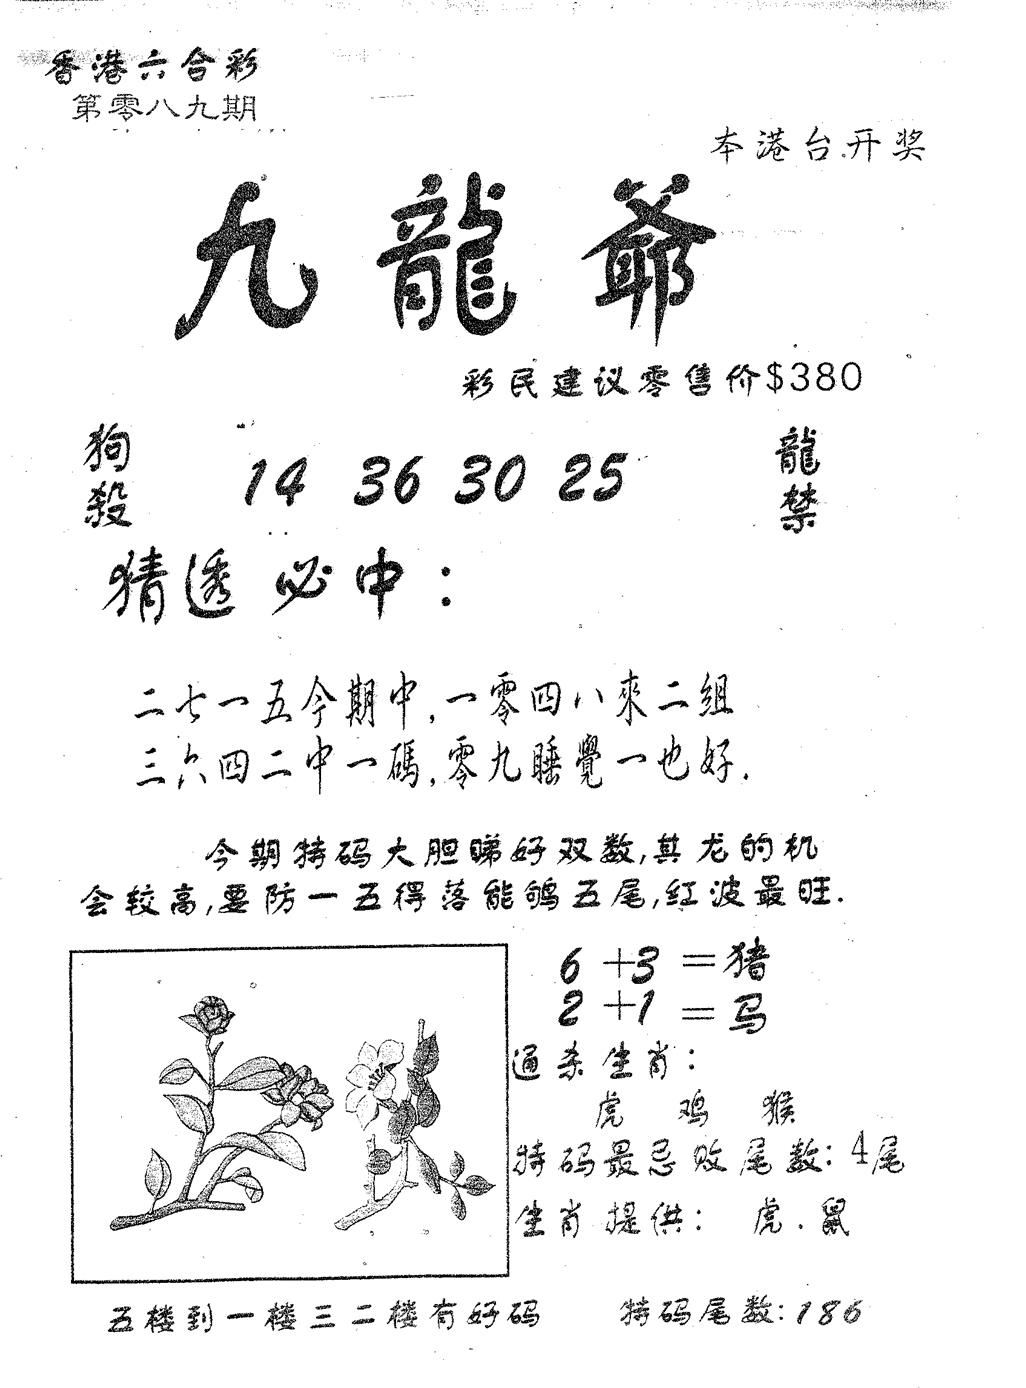 香港六合彩
第零八九期
本港台.开奖
九龍爺
彩民建议零售价$380
狗殺 14 36 30 25 龍禁
猜透必中：
二七一五今期中,一零四八來二组
三六四二中一碼,零九睡覺一也好.
今期特码大胆睇好双数,其龙的机
会较高,要防一五得落能鸲五尾,红波最旺.
6+3=猪
2+1=马
通杀生肖：
虎 鸡 猴
特码最忌败尾数：4尾
生肖提供： 虎.鼠
五楼到一楼三二楼有好码 特码尾数:186